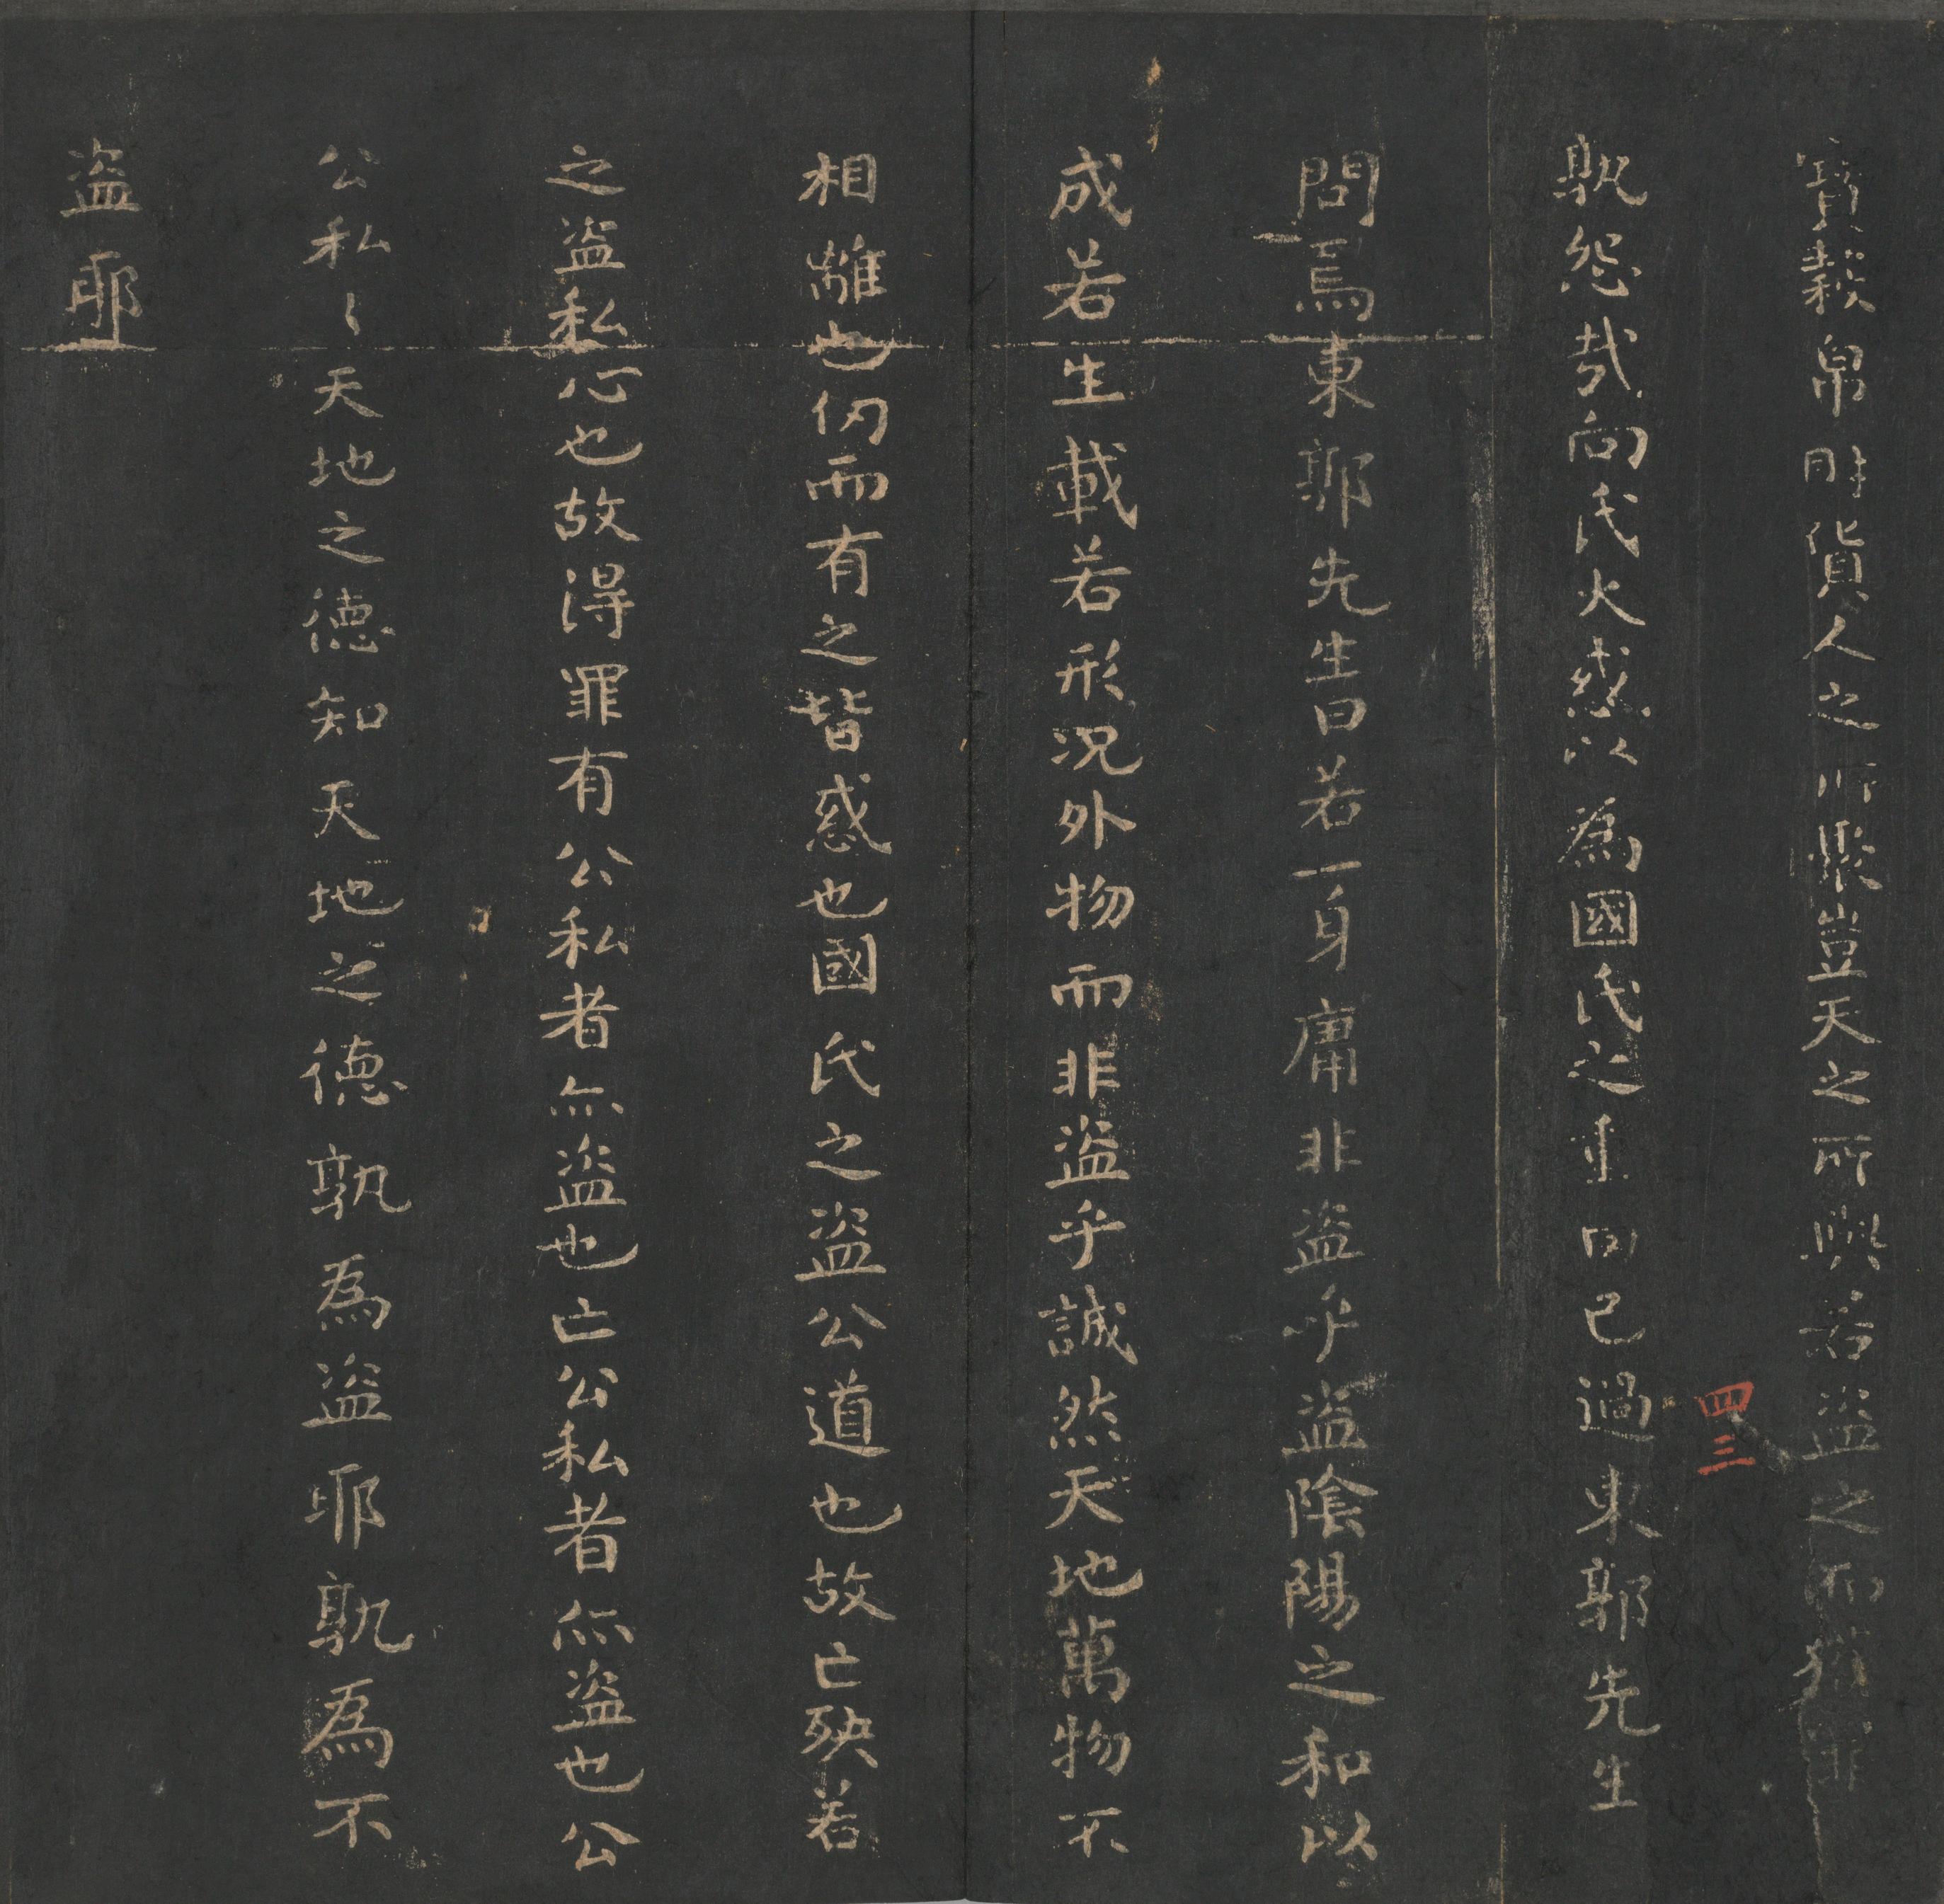 寶穀帛財貨人之所聚豈天之所與若盜之而獲罪
孰怨哉向氏大惑以為國氏之重罔己過東郭先生
問焉東郭先生曰若一身庸非盜乎盜陰陽之和以
成若生載若形況外物而非盜乎誠然天地萬物不
相離也仞而有之皆惑也國氏之盜公道也故亡殃若
之盜私心也故得罪有公私者亦盜也亡公私者亦盜也公
公私〻天地之德知天地之德孰為盜耶孰為不
盜耶
四三